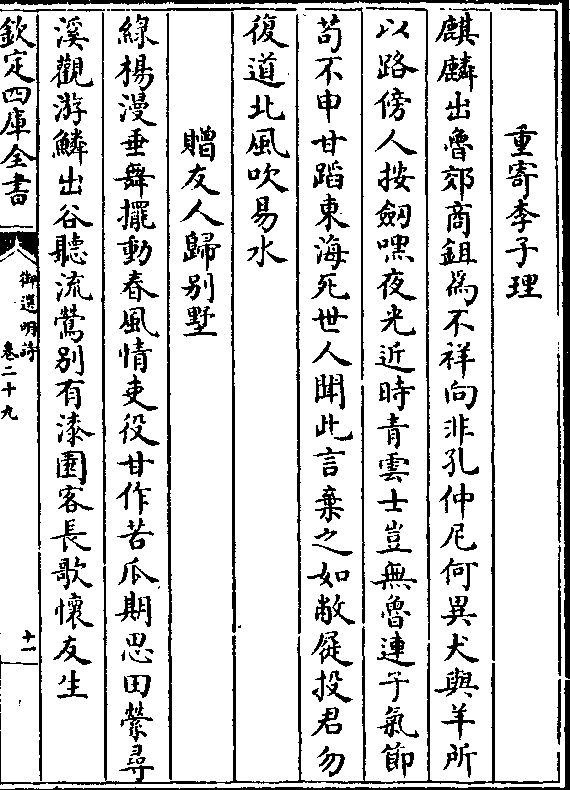 重寄李子理
麒麟出魯郊商鉏為不祥向非孔仲尼何異犬與羊所
以路傍人按劒嘿夜光近時青雲士豈無魯連子氣節
苟不申甘蹈東海死世人聞此言棄之如敝屣投君勿
復道北風吹易水
贈友人歸别墅
綠楊漫垂舞擺動春風情吏役甘作苦瓜期思田縈尋
溪觀游鱗出谷聽流鶯别有漆園客長歌懷友生
欽定四庫全書
御選明詩
卷二十九
十一